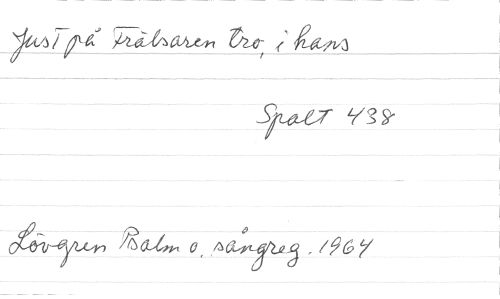 Just på Frälsaren tro, i hans
Spalt 438
Lövgren Psalm o. sångreg. 1964